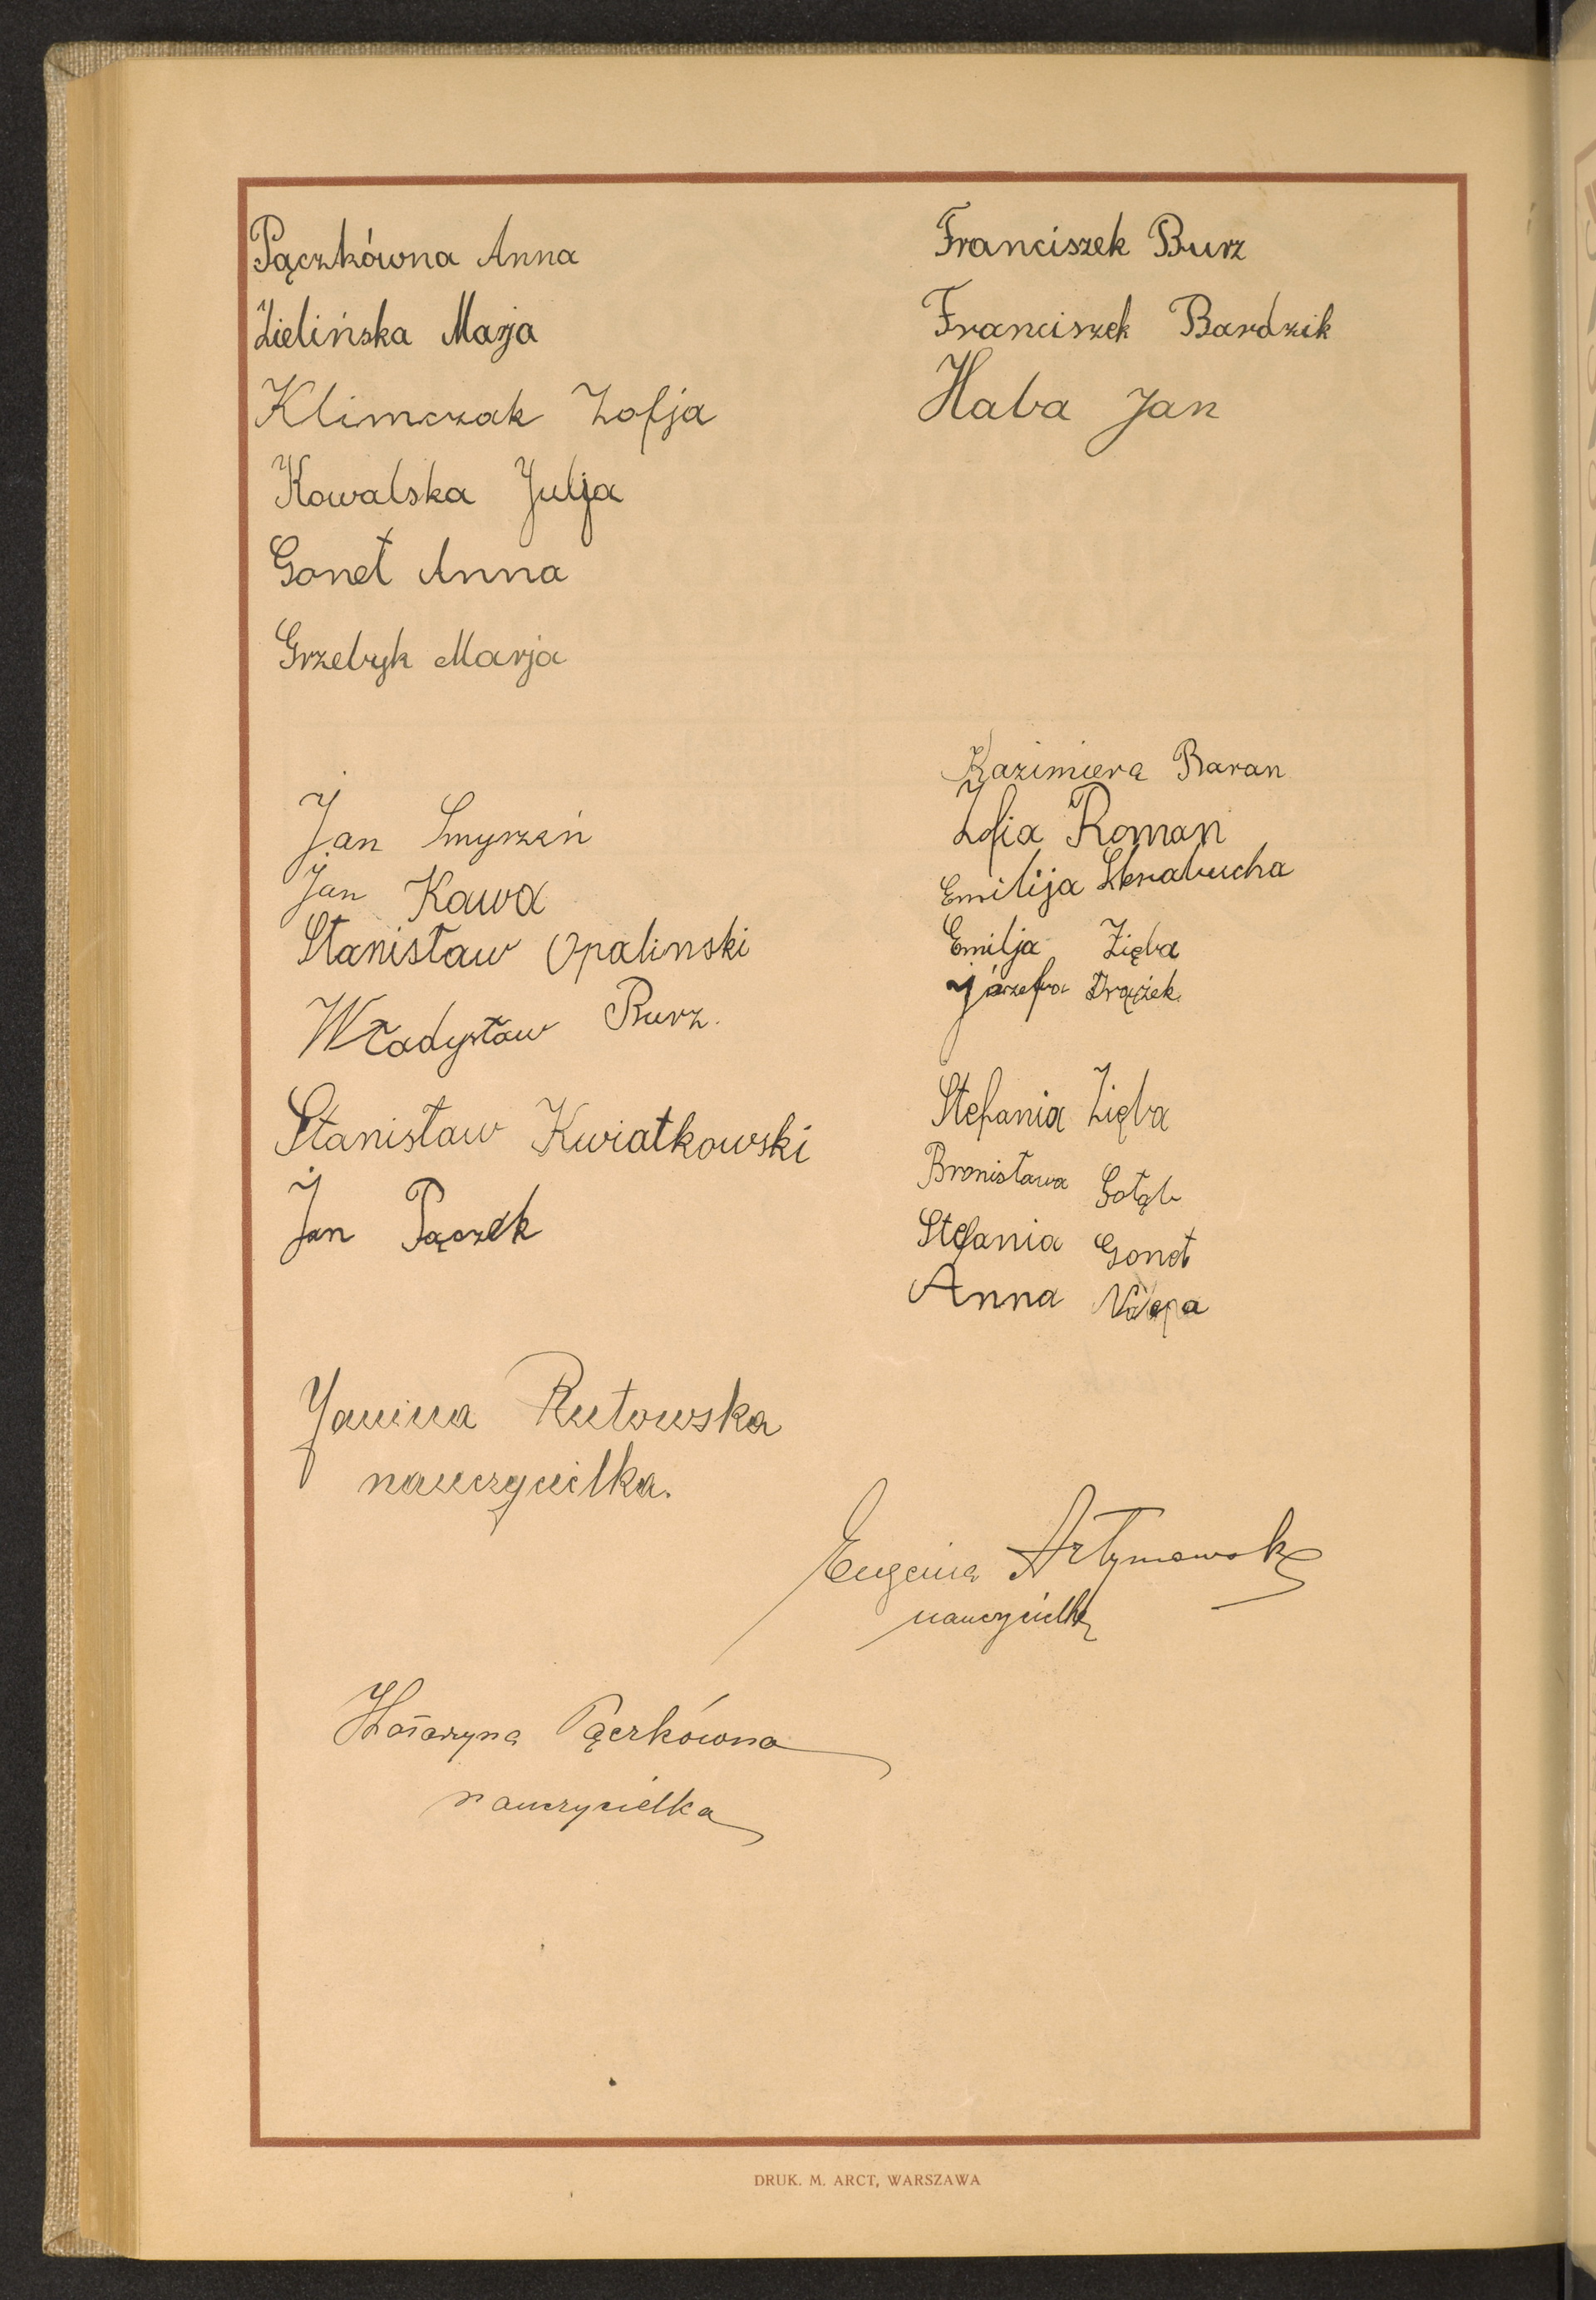 Pączkówna Anna
Zielińska Marja
Klimczak Zofja
Kowalska Julja
Gonet Anna
Grzebyk Marja
Franciszek Burz
Franciszek Bardzik
Haba Jan
Jan Smyrzeń
Jan Kawa
Stanisław Opalinski
Władysław Burz.
Stanisław Kwiatkowski
Jan Pączek
Kazimiera Baran
Zofia Roman
Emilija Skrabucha
Emilja Zięba
Józefa Drążek.
Stefania Zięba
Bronisława Gołąb
Stefania Gonet
Anna Nalepa
Janina Rutowska
nauczycielka.
Eugenia
nauczycielka
Katarzyna Pączkówna
nauczycielka
DRUK. M. ARCT, WARSZAWA